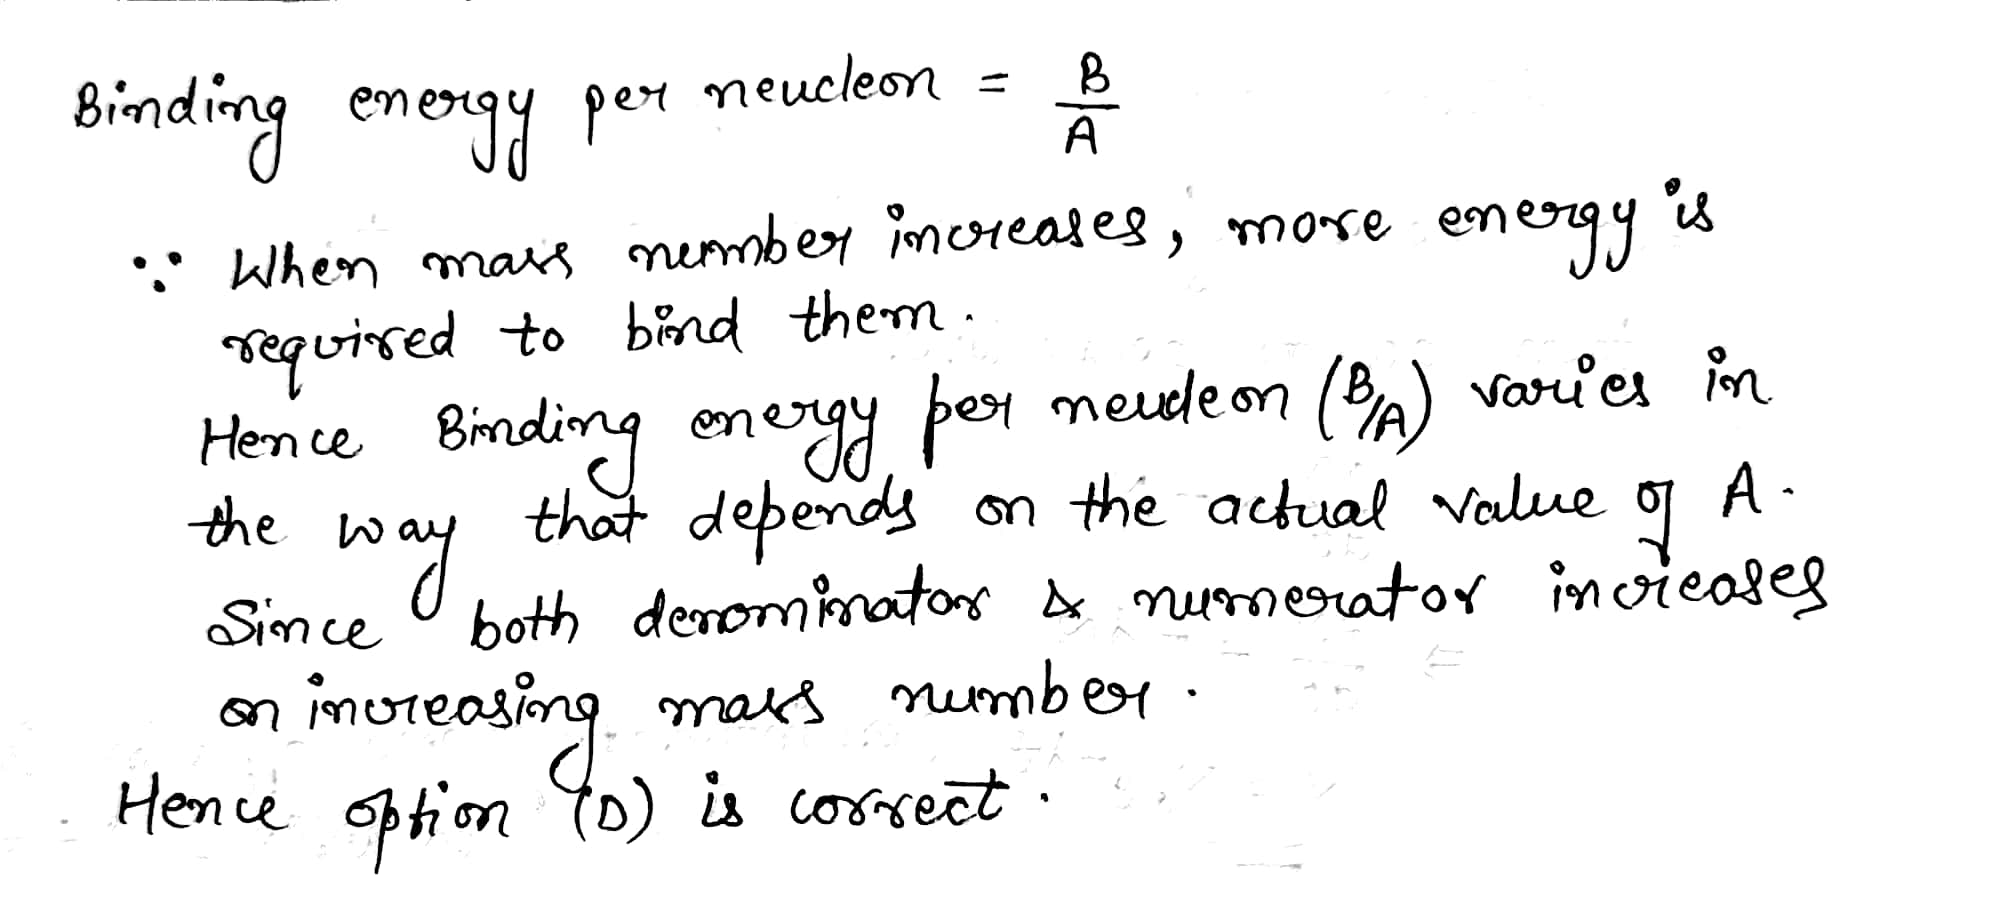 Binding energy per neucleon = B/A
∵ When mass number increases, more energy is
required to bind them.
Hence Binding energy per neucleon (B/A) varies in
the way that depends on the actual value of A.
Since both denominator & numerator increases
on increasing mass number.
Hence option (D) is correct.